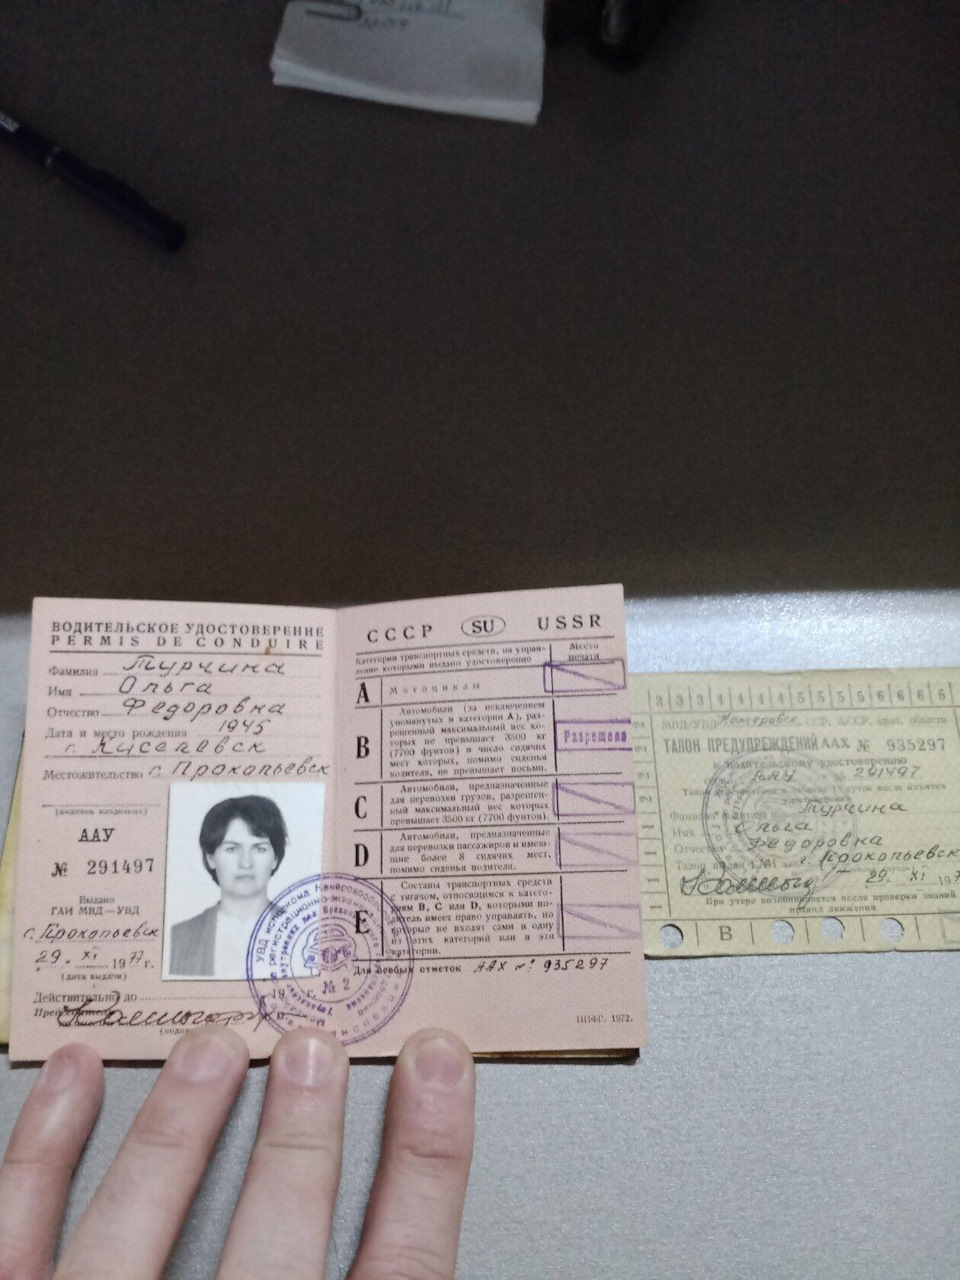 ВОДИТЕЛЬСКОЕ УДОСТОВЕРЕНИЕ
PERMIS DE CONDUIRE
Фамилия Турчина
Имя Ольга
Отчество Федоровка
Дата и место рождения 1945
г. Киселевск
Местожительство г. Прокопьевск
(подпись владельца)
ААУ
№ 291497
Выдано
ГАИ МВД—УВД
г. Прокопьевск
29. XI 1977 г.
(дата выдачи)
Действительно до 19 г.
СССР SU USSR
Категории транспортных средств, на управление которыми выдано удостоверение
Место печати
A Мотоциклы
B Автомобили (за исключением
упомянутых в категории А), раз-
решенный максимальный вес ко-
торых не превышает 3500 кг
(7700 фунтов) и число сидячих
мест которых, помимо сиденья
водителя, не превышает восьми.
Разрешено
C Автомобили, предназначенные
для перевозки грузов, разрешен-
ный максимальный вес которых
превышает 3500 кг (7700 фунтов).
D Автомобили, предназначенные
для перевозки пассажиров и имею-
щие более 8 сидячих мест,
помимо сиденья водителя.
E Составы транспортных средств
с тягачом, относящимся к катего-
риям В, С или D, которыми во-
дитель имеет право управлять, но
которые не входят сами в одну
из этих категорий или в эти
категории.
Для особых отметок ААХ № 935297
1972.
№ 2
3 3 3 4 4 4 4 5 5 5 6 6 6 6
МВД/УВД
ТАЛОН ПРЕДУПРЕЖДЕНИЙ ААХ № 935297
к водительскому удостоверению
ААУ № 291497
Турчина
Имя Ольга
Отчество Федоровка
г. Прокопьевск
29. XI 197
При утере возобновляется после проверки знаний
правил движения.
B